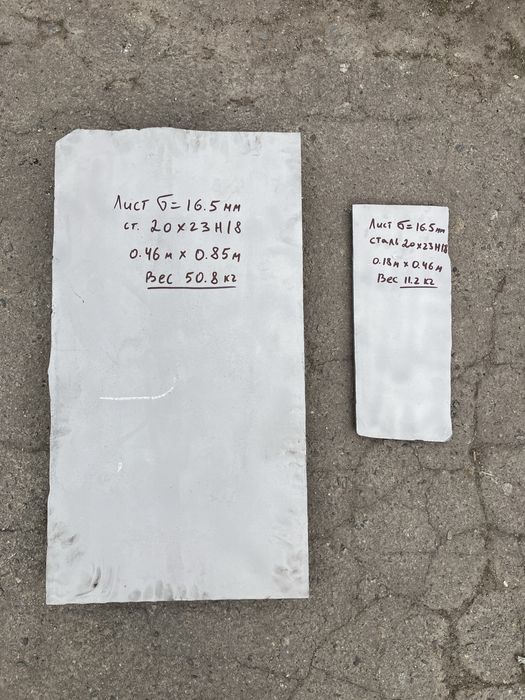 Лист б=16.5мм
ст. 20х23Н18
0.46м х 0.85м
Вес 50.8кг
Лист б=16.5мм
сталь 20х23Н18
0.18м х 0.46м
Вес 11.2кг